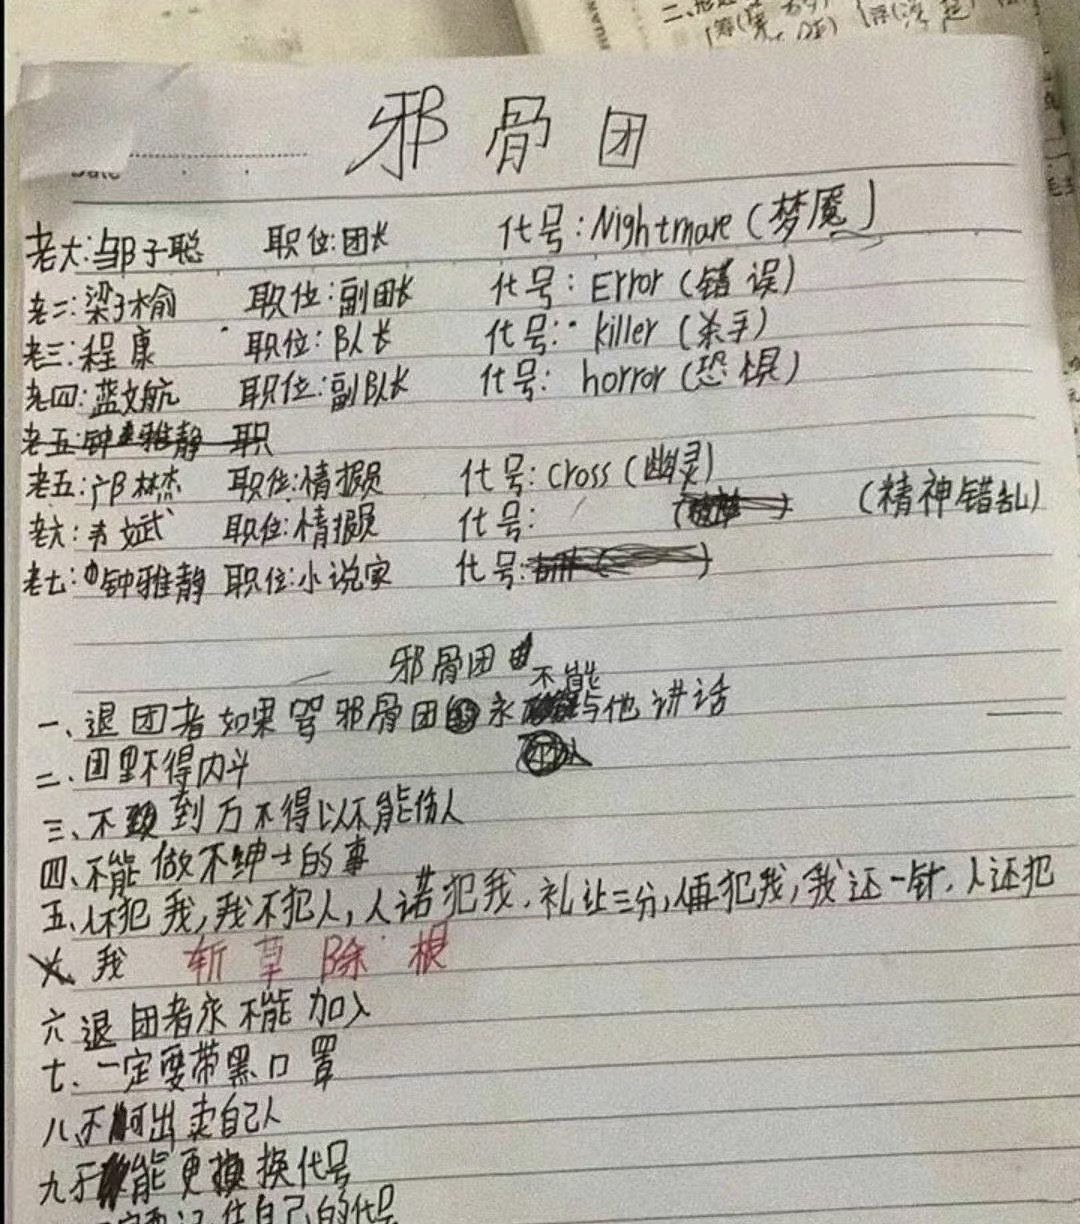 邪骨团
老大:邹子聪 职位:团长 代号:Nightmare(梦魇)
老二:梁子榆 职位:副团长 代号:Error(错误)
老三:程康 职位:队长 代号:killer(杀手)
老四:蓝文航 职位:副队长 代号:horror(恐惧)
老五:钟雅静 职
老五:邝林杰 职位:情报员 代号:Cross(幽灵)
老六:韦斌 职位:情报员 代号: (精神错乱)
老七:钟雅静 职位:小说家 代号:
邪骨团
一、退团者如果骂邪骨团永不能与他讲话
二、团里不得内斗
三、不到万不得以不能伤人
四、不能做不绅士的事
五、人不犯我,我不犯人,人诺犯我,礼让三分,人再犯我,我还一针,人还犯
我 斩草除根
六退团者永不能加入
七、一定要带黑口罩
八、不可出卖自己人
九不能更换代号
住自己的代号